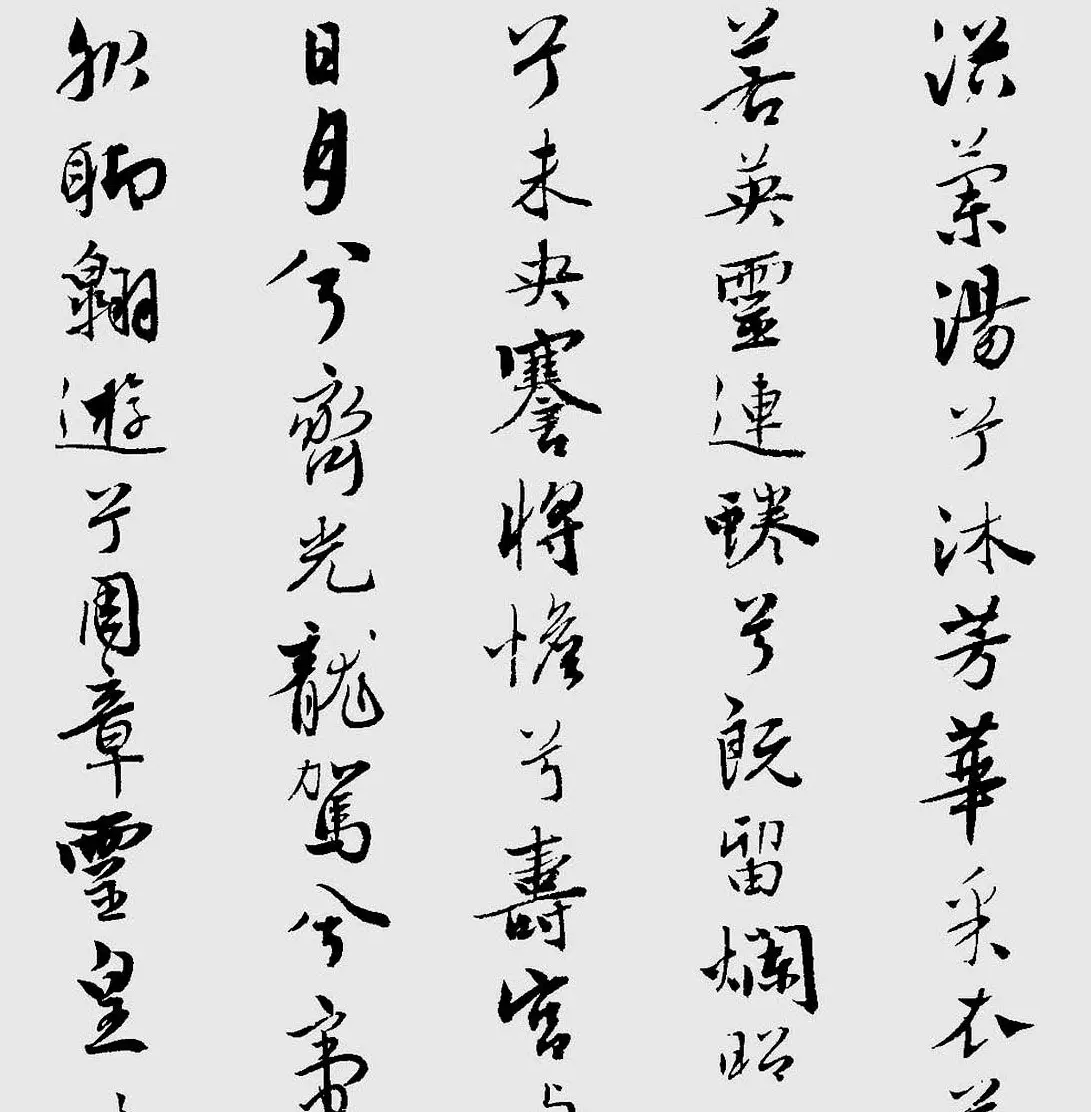 浴蘭湯兮沐芳華采衣
若英靈連蜷兮既留爛昭
兮未央謇將憺兮壽宮
日月兮齊光龍駕兮帝
服聊翱遊兮周章靈皇